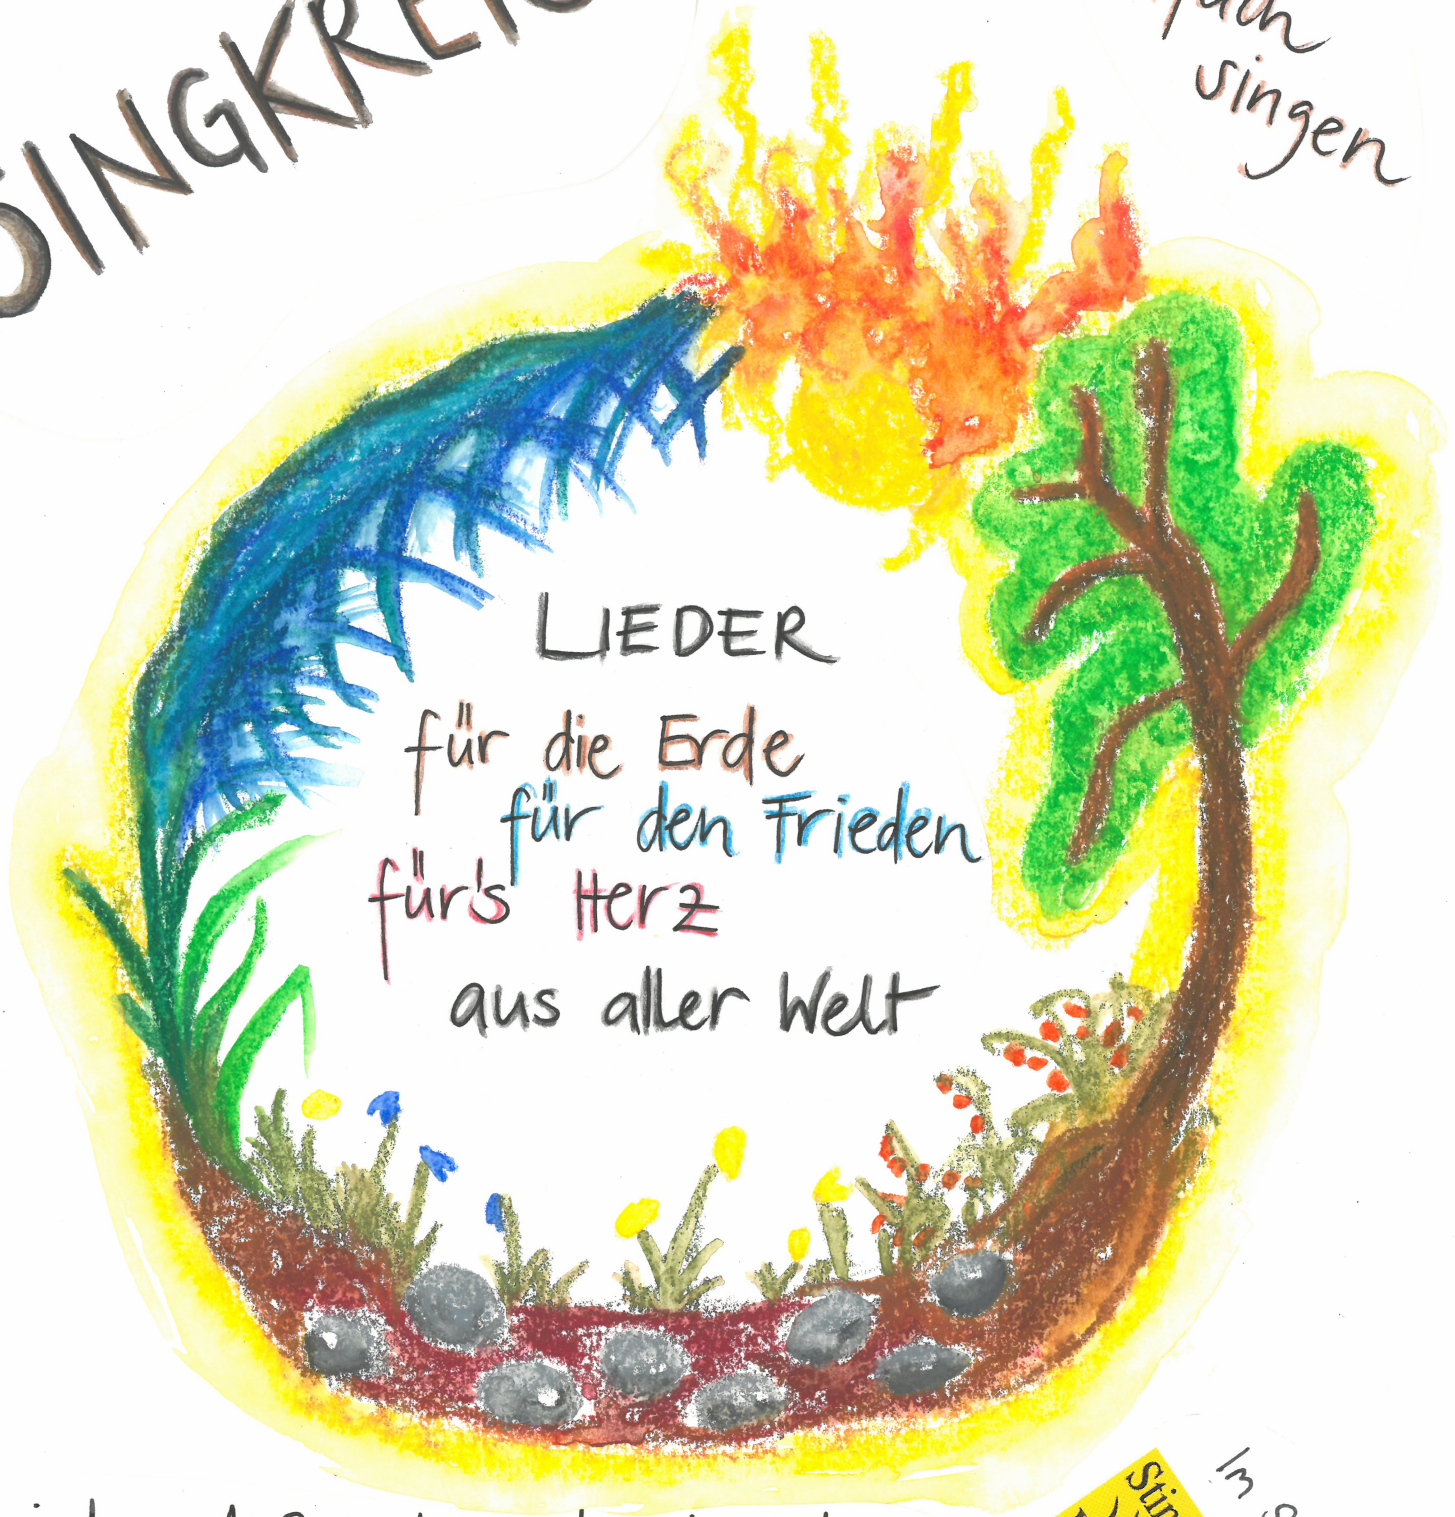 SINGKREIS
singen
LIEDER
für die Erde
für den Frieden
für's Herz
aus aller Welt